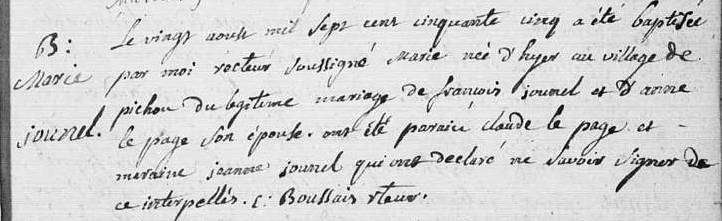 B:
Marie
jounel.
Le vingt aoust mil sept cens cinquante cinq a été baptisée
par moi recteur soussigné Marie née d'hyer au village de
pichou du legitime mariage de francois jounel et d'anne
le page son épouse. ont été parain claude le page et -
meraine jeanne jounel qui ont declaré ne savoir signer de
ce interpellés. c: Boussais rteur.